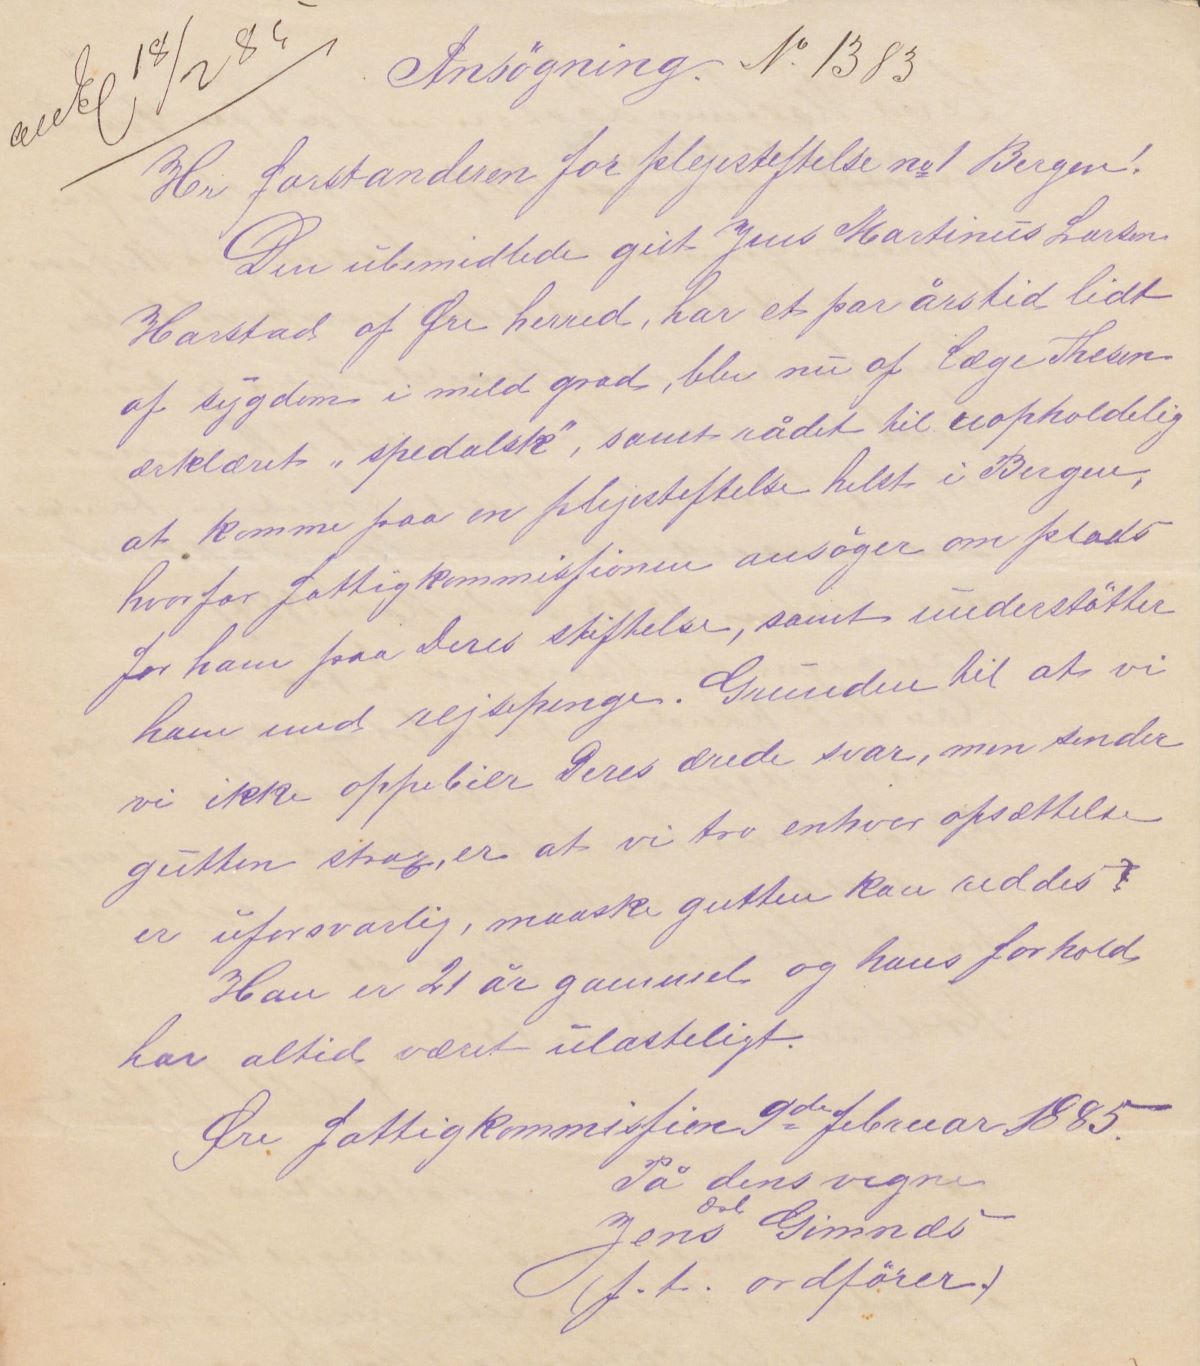 ank 18/2 85
Ansögning. No. 1383
Hr forstanderen for plejesteftelse no1 Bergen!
Den ubemidlede gut Jens Martinus Larsen
Harstad af Øre herred, har et par årstid lidt
af sygdom i mild grad, blev nu af læge Thesen
erklæret "spedalsk", samt rådet til uopholdelig
at komme paa en plejesteftelse helst i Bergen,
hvorfor fattigkommissionen ansöger om plads
for ham paa Deres stiftelse, samt understötter
ham med rejsepenge. Grunden til at vi
vi ikke oppebier Deres ærede svar, men sender
gutten strax, er at vi tro enhver opsættelse
er uforsvarlig, maaske gutten kan reddes?
Han er 21 år gammel og hans forhold
har altid været ulasteligt.
Øre fattigkommission 9de februar 1885.
På dens vegne
Jens Gimnæs
(f. t. ordförer.)